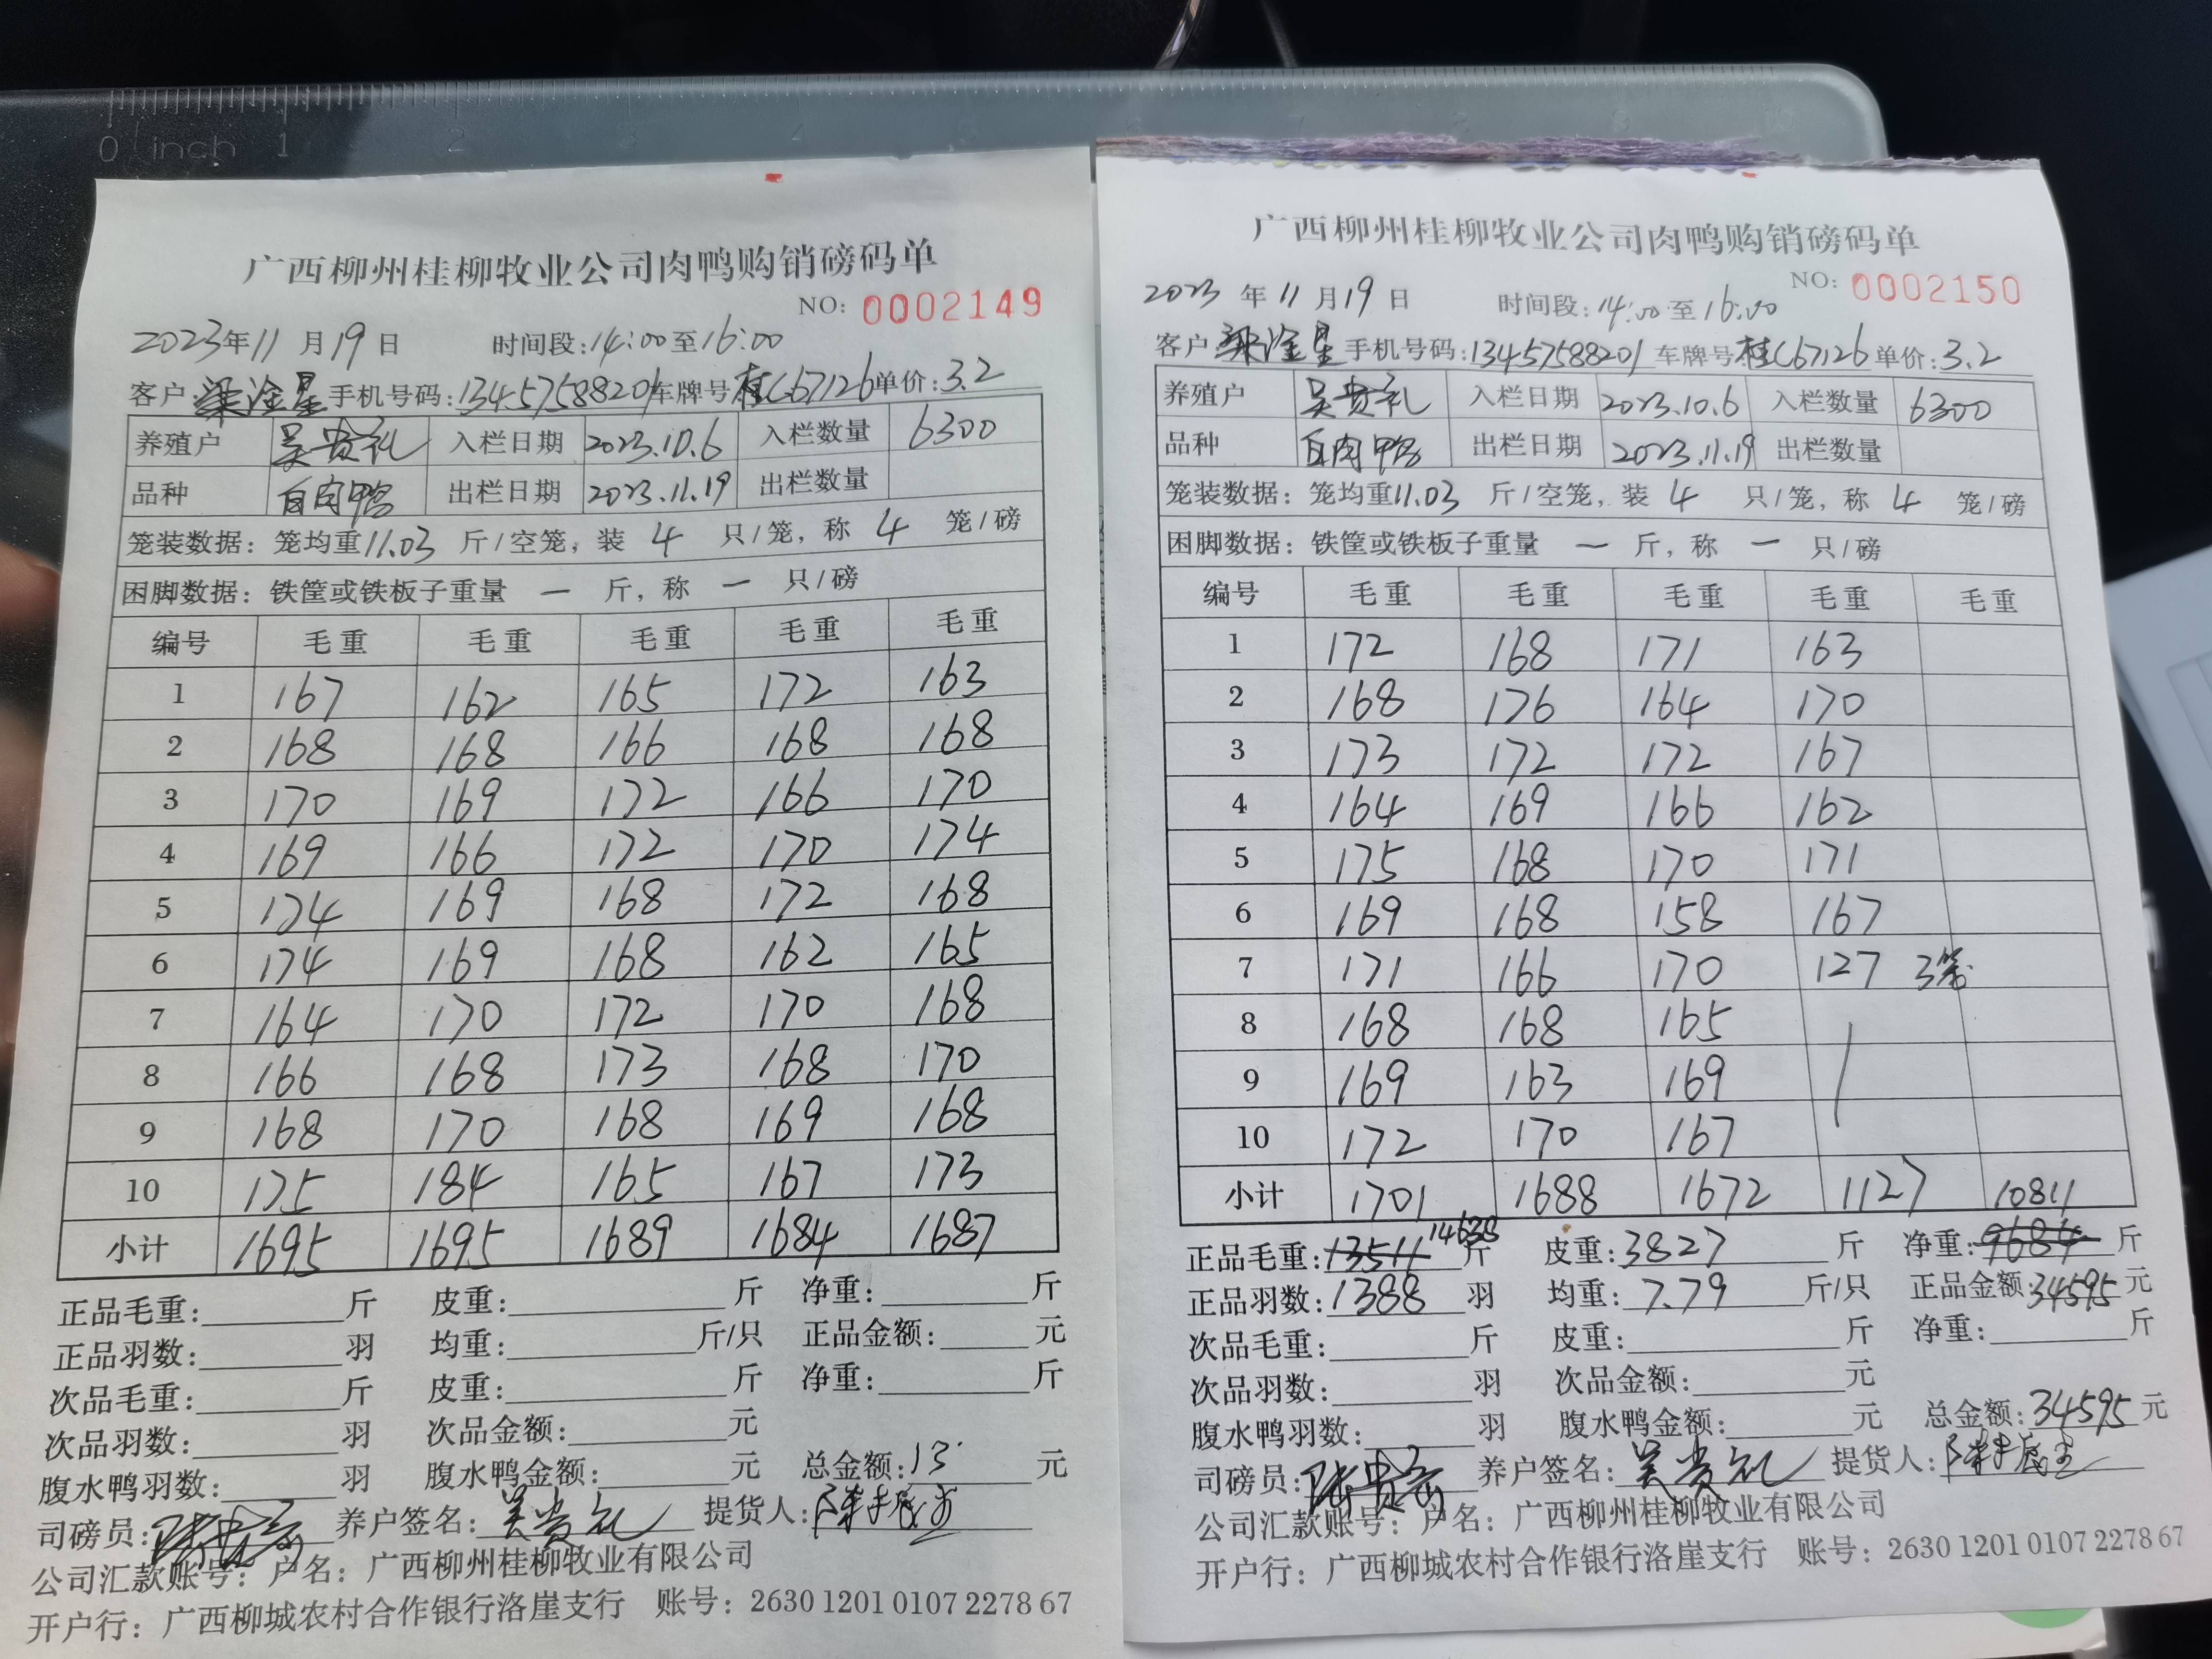 0 inch 1 2 3 4
广西柳州桂柳牧业公司肉鸭购销磅码单
NO: 0002149
2023年11月19日 时间段:14:00至16:00
客户:梁淦星 手机号码:13457588201 车牌号桂C67126 单价:3.2
养殖户 吴贵礼 入栏日期 2023.10.6 入栏数量 6300
品种 白肉鸭 出栏日期 2023.11.19 出栏数量
笼装数据: 笼均重11.03 斤/空笼, 装 4 只/笼, 称 4 笼/磅
困脚数据: 铁筐或铁板子重量 — 斤, 称 — 只/磅
编号 毛重 毛重 毛重 毛重 毛重
1 167 162 165 172 163
2 168 168 166 168 168
3 170 169 172 166 170
4 169 166 172 170 174
5 174 169 168 172 168
6 174 169 168 162 165
7 164 170 172 170 168
8 166 168 173 168 170
9 168 170 168 169 168
10 175 184 165 167 173
小计 1695 1695 1689 1684 1687
正品毛重: 斤 皮重: 斤 净重: 斤
正品羽数: 羽 均重: 斤/只 正品金额: 元
次品毛重: 斤 皮重: 斤 净重: 斤
次品羽数: 羽 次品金额: 元
腹水鸭羽数: 羽 腹水鸭金额: 元 总金额:13 元
司磅员: 养户签名: 吴贵礼 提货人:
公司汇款账号: 户名: 广西柳州桂柳牧业有限公司
开户行: 广西柳城农村合作银行洛崖支行 账号: 2630 1201 0107 2278 67
广西柳州桂柳牧业公司肉鸭购销磅码单
NO: 0002150
2023 年 11 月 19 日 时间段:14:00至16:00
客户 梁淦星 手机号码:13457588201 车牌号 桂C67126 单价:3.2
养殖户 吴贵礼 入栏日期 2023.10.6 入栏数量 6300
品种 白肉鸭 出栏日期 2023.11.19 出栏数量
笼装数据: 笼均重11.03 斤/空笼, 装 4 只/笼, 称 4 笼/磅
困脚数据: 铁筐或铁板子重量 — 斤, 称 — 只/磅
编号 毛重 毛重 毛重 毛重 毛重
1 172 168 171 163
2 168 176 164 170
3 173 172 172 167
4 164 169 166 162
5 175 168 170 171
6 169 168 158 167
7 171 166 170 127 3笼
8 168 168 165
9 169 163 169
10 172 170 167
小计 1701 1688 1672 1127 10811
正品毛重:13511 14638 斤 皮重:3827 斤 净重:9684 斤
正品羽数:1388 羽 均重:7.79 斤/只 正品金额:34595 元
次品毛重: 斤 皮重: 斤 净重: 斤
次品羽数: 羽 次品金额: 元
腹水鸭羽数: 羽 腹水鸭金额: 元 总金额:34595 元
司磅员: 养户签名: 吴贵礼 提货人:
公司汇款账号: 户名: 广西柳州桂柳牧业有限公司
开户行: 广西柳城农村合作银行洛崖支行 账号: 2630 1201 0107 2278 67